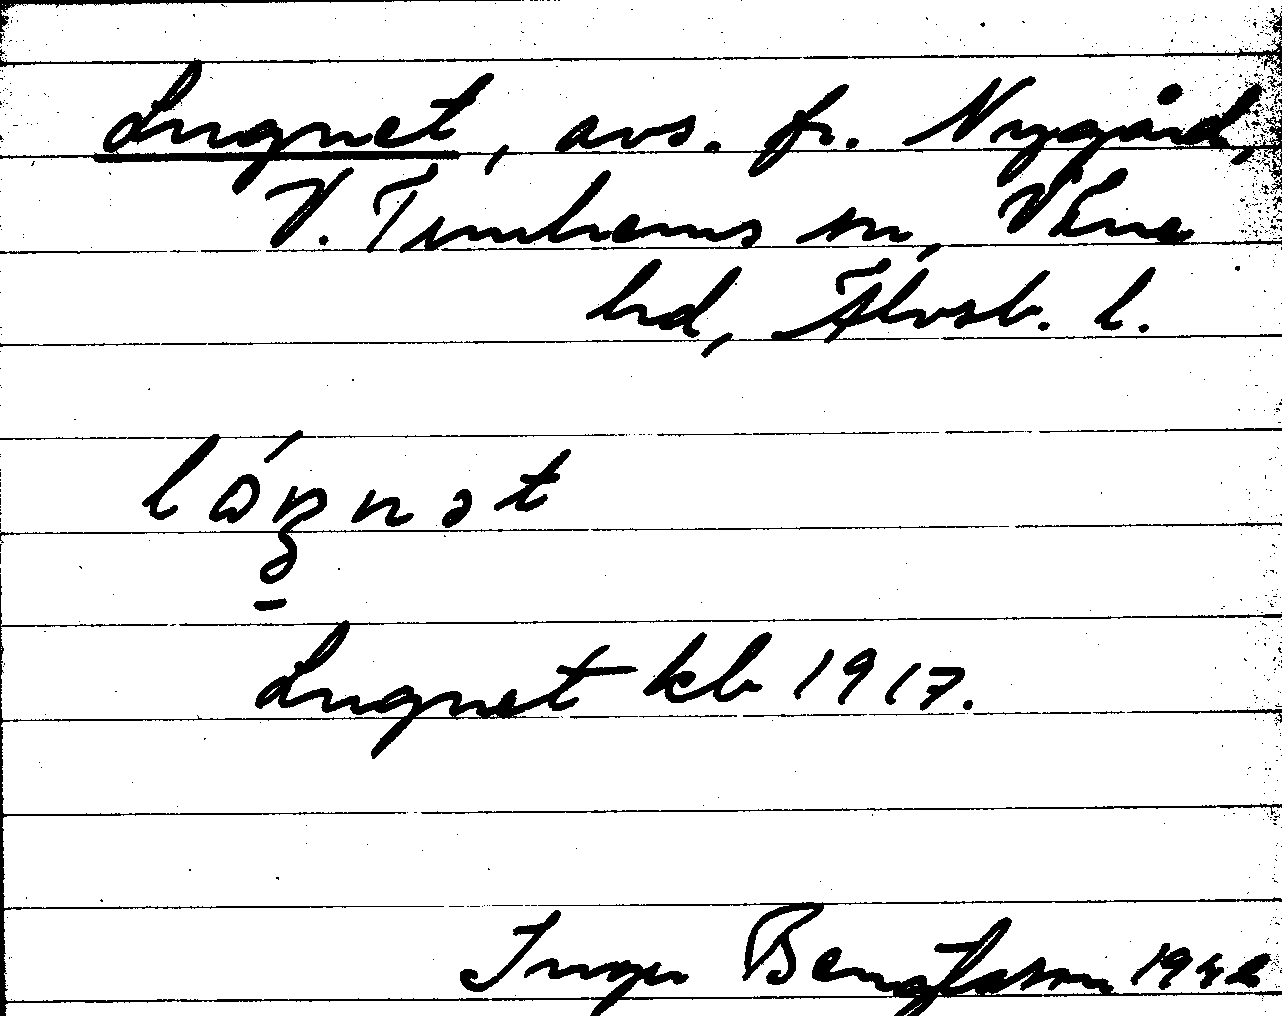 Lugnet, avs. fr. Nygård,
V. Tunhems sn, Väne
hd, Älvsb. l.
lɷ́ŋnət
Lugnet kb 1917.
Inger Bengtsson 1942